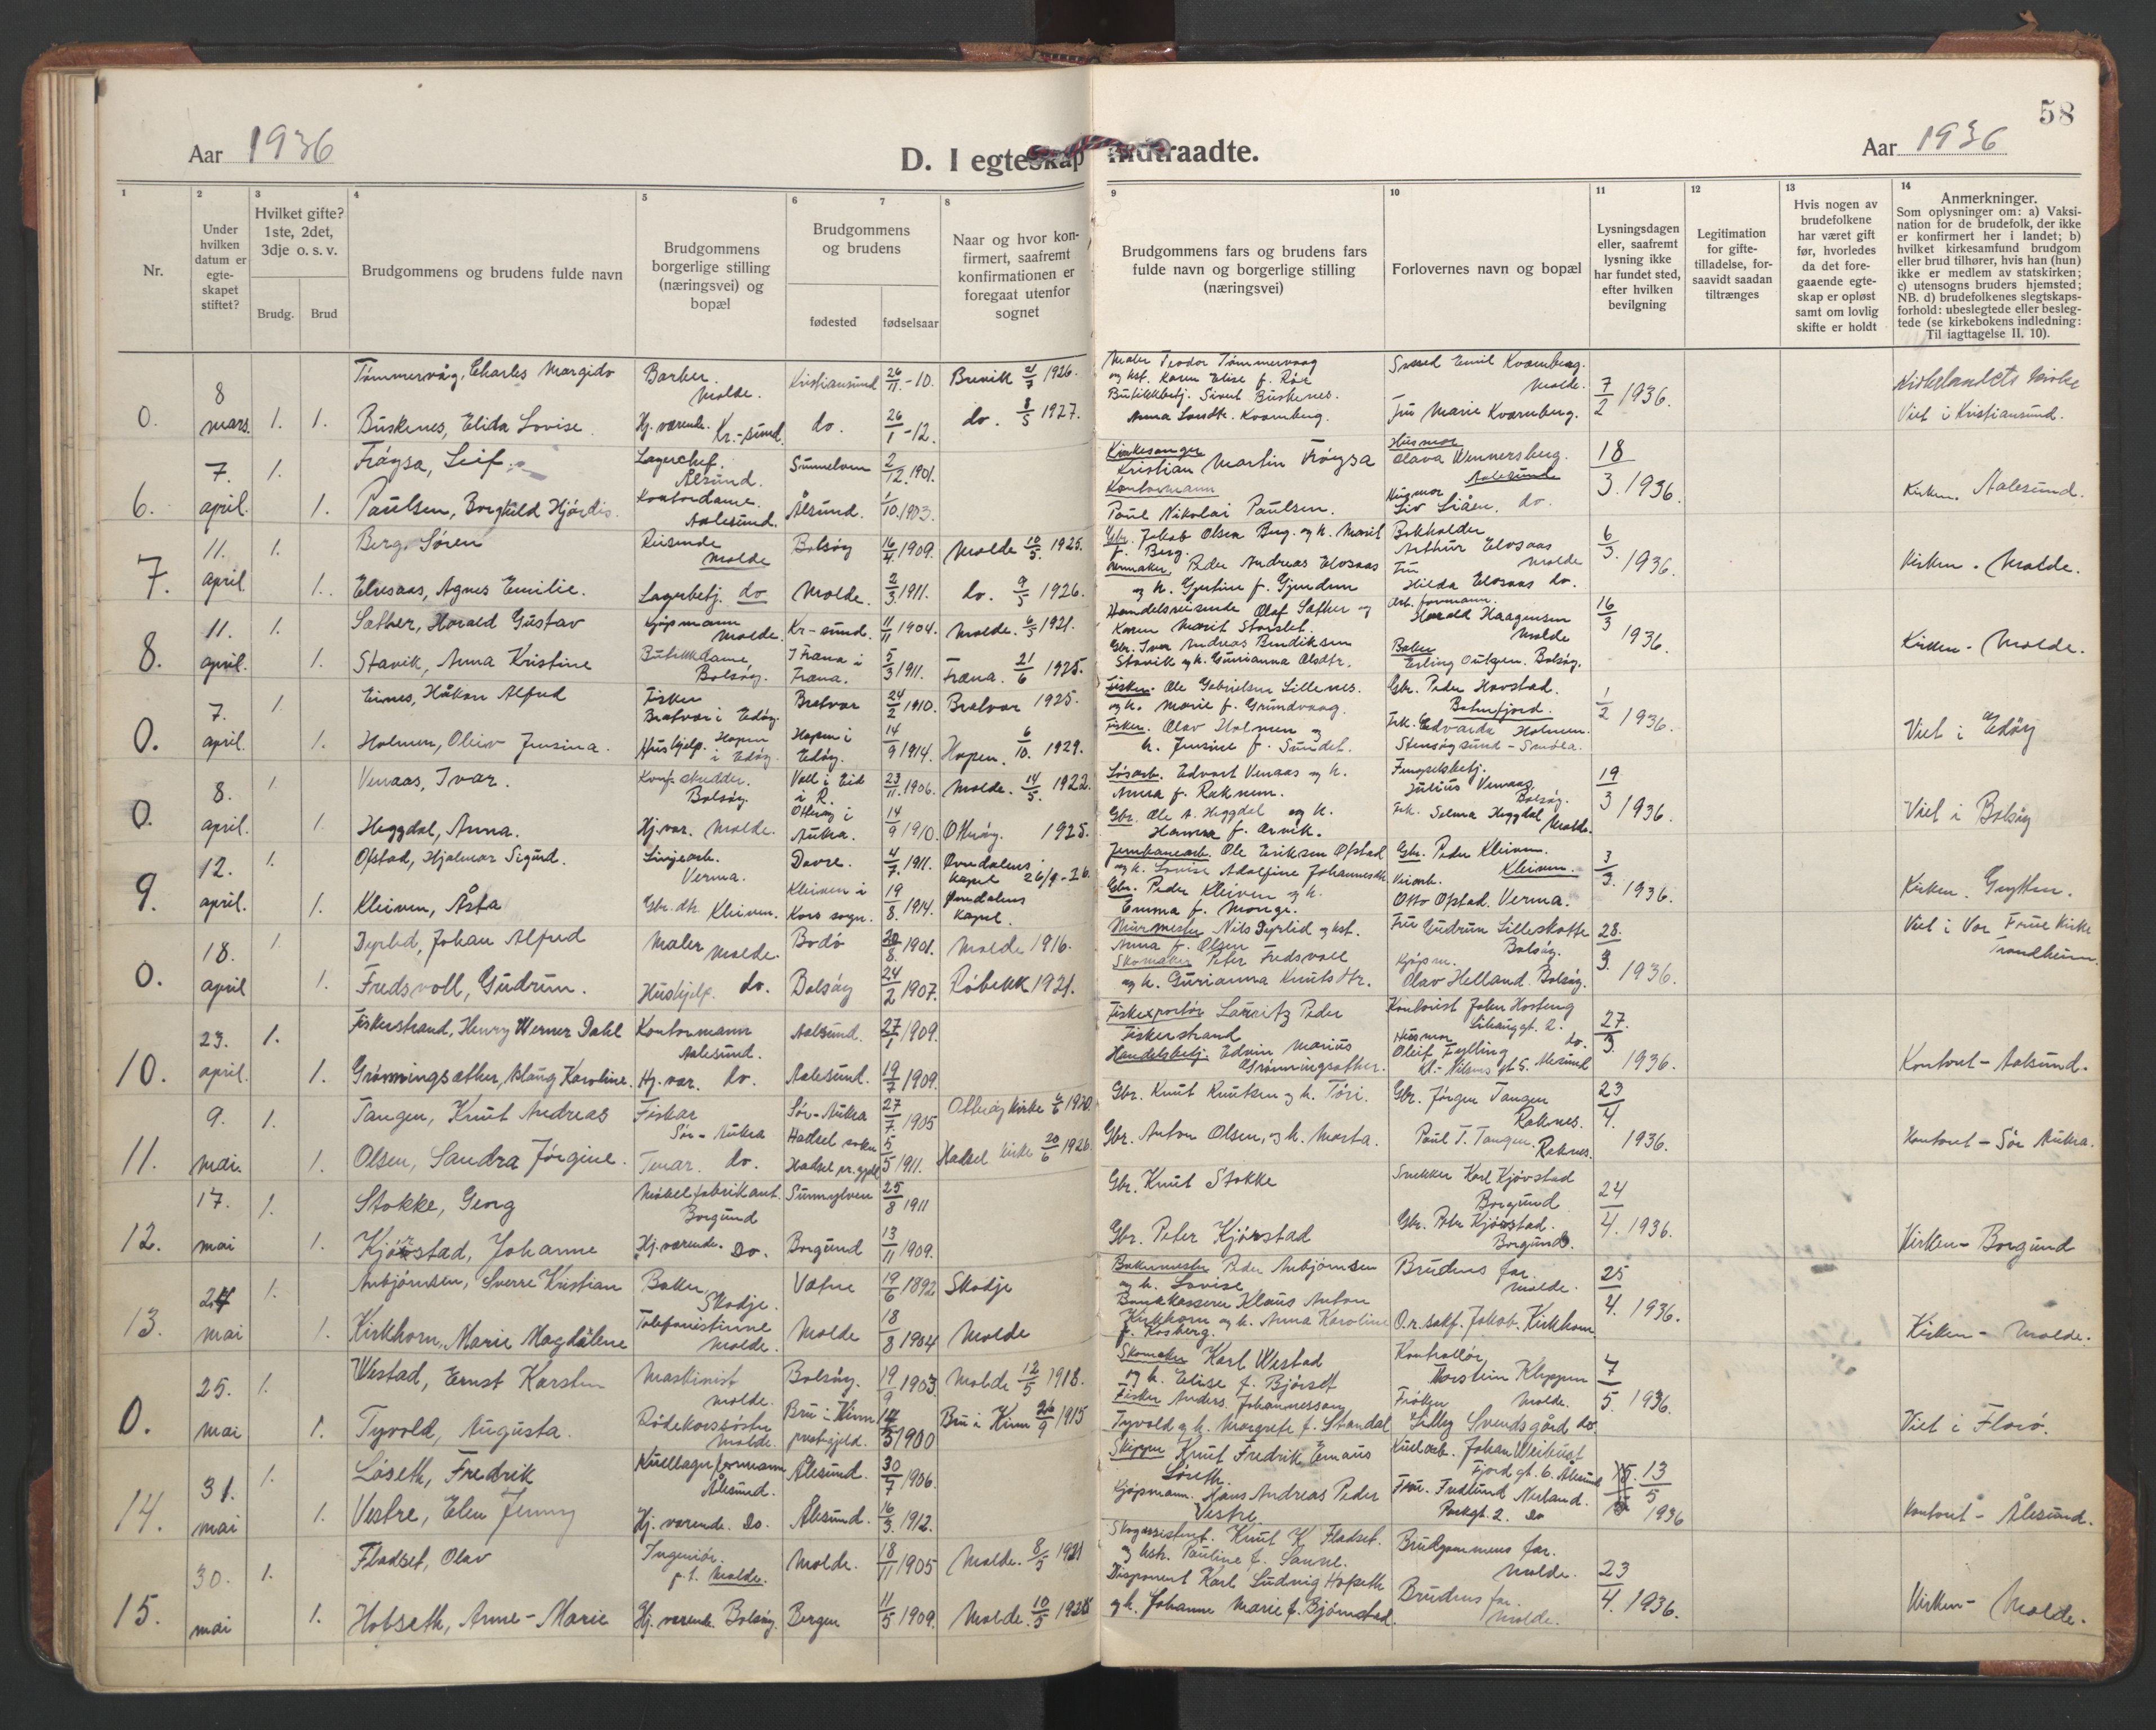 58
Aar 1936
D. I egteskap indtraadte.
Aar 1936
1
2
3
4
5
6
7
8
9
10
11
12
13
14
Nr.
Under
hvilken
datum er
egte-
skapet
stiftet?
Hvilket gifte?
1ste, 2det,
3dje o. s. v.
Brudg.
Brud
Brudgommens og brudens fulde navn
Brudgommens
borgerlige stilling
(næringsvei) og
bopæl
Brudgommens
og brudens
fødested
fødselsaar
Naar og hvor kon-
firmert, saafremt
konfirmationen er
foregaat utenfor
sognet
Brudgommens fars og brudens fars
fulde navn og borgerlige stilling
(næringsvei)
Forlovernes navn og bopæl
Lysningsdagen
eller, saafremt
lysning ikke
har fundet sted,
efter hvilken
bevilgning
Legitimation
for gifte-
tilladelse, for-
saavidt saadan
tiltrænges
Hvis nogen av
brudefolkene
har været gift
før, hvorledes
da det fore-
gaaende egte-
skap er opløst
samt om lovlig
skifte er holdt
Anmerkninger.
Som oplysninger om: a) Vaksi-
nation for de brudefolk, der ikke
er konfirmert her i landet; b)
hvilket kirkesamfund brudgom
eller brud tilhører, hvis han (hun)
ikke er medlem av statskirken;
c) utensogns bruders hjemsted;
NB. d) brudefolkenes slegtskaps-
forhold: ubeslegtede eller besleg-
tede (se kirkebokens indledning:
Til iagttagelse II. 10).
0. 8 mars. 1. 1.
Tømmervåg, Charles Margido Barber. Molde. Kristiansund 26/11-10. Brevik 1926.
Buskenes, Elida Lovise. Hj. værende. Kr.-sund. do. 26/1-12. do. 8/5 1927.
Maler Teodor Tømmervaag
og hst. Karen Elise f. Røe
Butikkbetj. Sivert Buskenes.
Kvarnberg.
Svend Emil Kvarnberg.
Molde.
Fru Marie Kvarnberg.
7/2 1936.
Kirkelandets kirke
Viet i Kristiansund.
6. 7. april. 1. 1.
Frøysa, Leif. Lagerchef. Ålsund. Sunnelven 2/12. 1901.
Paulsen, Borghild Hjørdis. Kontordame. Aalesund. Ålsund. 1/10. 1903.
Kirkesanger
Kristian Martin Frøysa
Kontormann
Paul Nikolai Paulsen.
Husmor
Olava Wennersberg.
Aalesund
Husmor
Liv Liåen. do.
18/3. 1936.
Kirken. Aalesund.
7. 11. april. 1. 1.
Berg, Søren Reisende Molde Bolsøy 16/4 1909. Molde 10/5. 1925.
Elvesaas, Agnes Emilie. Lagerbetj. do Molde. 2/3 1911. do. 9/5 1926.
Gbr. Jakob Olsen Berg. og h. Marit
f. Berg.
Peder Andreas Elvsaas
og h. Gjertine f. Gjendem
Bokholder
Arthur Elvsaas
Molde
Fru
Hilda Elvsaas do.
6/3. 1936.
Kirken. Molde.
8. 11. april. 1. 1.
Sæther, Harald Gustav Kjøpmann Molde. Kr-sund. 11/11 1904. Molde. 6/5 1921.
Stavik, Anna Kristine Butikkdame, Bolsøy. I Fræna i Fræna. 5/3 1911. Fræna. 21/6 1925.
Handelsreisende Olaf Sæther og
Karen Marit Storslet.
Gbr. Iver Andreas Bendiksen
Stavik og h. Gurianna Olsdtr.
Arb. formann.
Harald Haagensen
Molde
Baker
Erling Outzen. Bolsøy.
16/3 1936.
Kirken - Molde.
0. 7. april. 1. 1.
Eines, Håkon Alfred Fisker Bratvær i Edøy. Bratvær 24/2 1910. Bratvær 1925.
Holmen, Oliva Jensina. Hushjelp. Hopen i Edøy. Hopen i Edøy. 14/9 1914. Hopen. 6/10. 1929.
Fisker. Ole Gabrielsen Lillenes.
og h. Marie f. Grundvaag.
Fisker. Olav Holmen og
h. Jensine f. Sundet.
Gbr. Peder Havstad.
Batnfjord.
Frk. Edvarda Holmen.
Stensøysund - Smøla.
1/2 1936.
Viet i Edøy
0. 8. april. 1. 1.
Venaas, Ivar. Bolsøy. Voll i Eid i R. 23/11. 1906. Molde. 14/5. 1922.
Heggdal, Anna. Hj. vær. Molde. Otterøy i Aukra. 14/9 1910. Otterøy. 1925.
Løsarb. Edvart Venaas og h.
Anna f. Raknem.
Gbr. Ole A. Heggdal og h.
Hanna f. Arvik.
Fengselsbetj.
Julius Venaas.
Bolsøy.
Frk. Selma Heggdal
Molde.
19/3 1936.
Viet i Bolsøy
9. 12. april. 1. 1.
Ofstad, Hjalmar Sigurd. Linjearb. Verma. Dovre. 4/7. 1911. Øvredalens kapel 26/9-26.
Kleiven, Åsta Gbr. dtr. Kleiven. Kleiven i Kors sogn. 19/8. 1914. Øvredalens kapel.
Jernbanearb. Ole Eriksen Ofstad
og h. Lovise Adolfine Johannesdtr.
Gbr. Peder Kleiven og h.
Emma f. Monge.
Gbr. Peder Kleiven.
Kleiven.
Veiarb.
Otto Ofstad. Verma.
3/3. 1936.
Kirken. Grytten.
0. 18. april 1. 1.
Dyrlid, Johan Alfred Maler Molde. Bodø 20/8. 1901. Molde 1916.
Fredsvoll, Gudrun. Hushjelp. do. Bolsøy 24/2 1907. Røbekk 1921.
Murmester Nils Dyrlid og hst.
Anna f. Olsen
Skomaker Peter Fredsvoll
og h. Gurianna Knutsdtr.
Fru Gudrun Lilleskotte
Bolsøy.
Kjøpm.
Olav Helland. Bolsøy.
28/3. 1936.
Viet i Vor Frue Kirke
Trondheim.
10. 23. april. 1. 1.
Fiskerstrand, Henry Werner Dahl Kontormann Aalesund. Aalesund. 27/1 1909.
Grønningsæther, Aslaug Karoline. Hj. vær. do. Aalesund. 19/7 1909.
Fiskexportør Lauritz Peder
Fiskerstrand
Handelsbetj. Edvin Marius
Grønningsæther.
Kontorist John
2.
Husmor do.
Oleif Fylling
Kl. Nilsens gt 5. Ålesund
27/3. 1936.
Kontoret - Aalsund.
11. 9. mai. 1. 1.
Tangen, Knut Andreas Fiskar Sør-Aukra Sør-Aukra 27/7. 1905 Otterøy Kirke 1920.
Olsen, Sandra Jørgine. Tenar. do. Hadsel sokn Hadsel pr.gjeld 5/5 1911. Hadsel kirke 20/6 1926.
Gbr. Knut Knutsen og h. Tori.
Gbr. Anton Olsen, og h. Marta.
Gbr. Jørgen Tangen
Raknes.
Paul T. Tangen. Raknes.
23/4. 1936.
Kontoret - Sør Aukra.
12. 17. mai 1. 1.
Stokke, Georg Møbelfabrikant. Borgund Sunnylven 25/8 1911
Kjørstad, Johanne Hj. værende. Do. Borgund 13/11 1909.
Gbr. Knut Stokke
Gbr. Peter Kjørstad
Snekker Karl Kjørstad
Borgund
Gbr. Petr. Kjørstad.
Borgund.
24/4. 1936.
Kirken - Borgund
13. 24 mai 1. 1.
Arnbjørnsen, Sverre Kristian Baker Skodje. Vatne 19/6 1892 Skodje
Kirkhorn, Marie Magdalene Telefonistinne Molde. Molde 18/8 1904 Molde
Bakermester Peder Arnbjørnsen
og h. Lovise
Bankkasserer Klaus Anton
Kirkhorn og h. Anna Karoline
f. Rosberg.
Brudens far.
Molde.
O.r.sakf. Jakob Kirkhorn
25/4. 1936.
Kirken - Molde.
0. 25. mai 1. 1.
Westad, Ernst Karsten Maskinist Molde. Bolsøy. 19/9 1903. Molde 12/5 1918.
Tyvold, Augusta. Rødekorssøster Molde. Bru i Kinn prestegjeld. 1900 Bru i Kinn 26/9 1915
Skomaker Karl Westad
og h. Elise f. Bjørset
Fisker Anders Johannessen
Tyvold og h. Margrete f. Standal
Kontrollør
Torstein Kleppen
Molde.
Frøken
Lilly Svendsgård do.
7/5. 1936.
Viet i Florø.
14. 31. mai 1. 1.
Løseth, Fredrik Kullager formann Ålesund. Ålesund. 30/7 1906.
Vestre, Elen Jenny Hj. værende. Do. Ålesund. 16/3. 1912.
Skipper Knut Fredrik Emaus
Løseth.
Kjøpmann. Hans Andreas Peder
Vestre.
Kullarb. Johan Weikust
Fjordgt. 6. Ålesund
Fru. Fredlund Nerland.
Parkgt. 2. Do
13/5 1936
Kontoret - Ålesund.
15. 30. mai 1. 1.
Fladset, Olav Ingeniør. p.t. Molde. Molde. 18/11 1905 Molde. 8/5 1921
Hofseth, Anne-Marie Hj. værende. Bolsøy. Bergen 11/5 1909. Molde 10/5 1925
Skogassistent. Knut K. Fladset.
og hst. Pauline f. Sanne.
Disponent Karl Ludvig Hofseth
og h. Johanne Marie f. Bjørnstad.
Brudgommens far.
Molde.
Brudens far.
Molde.
23/4. 1936.
Kirken - Molde.